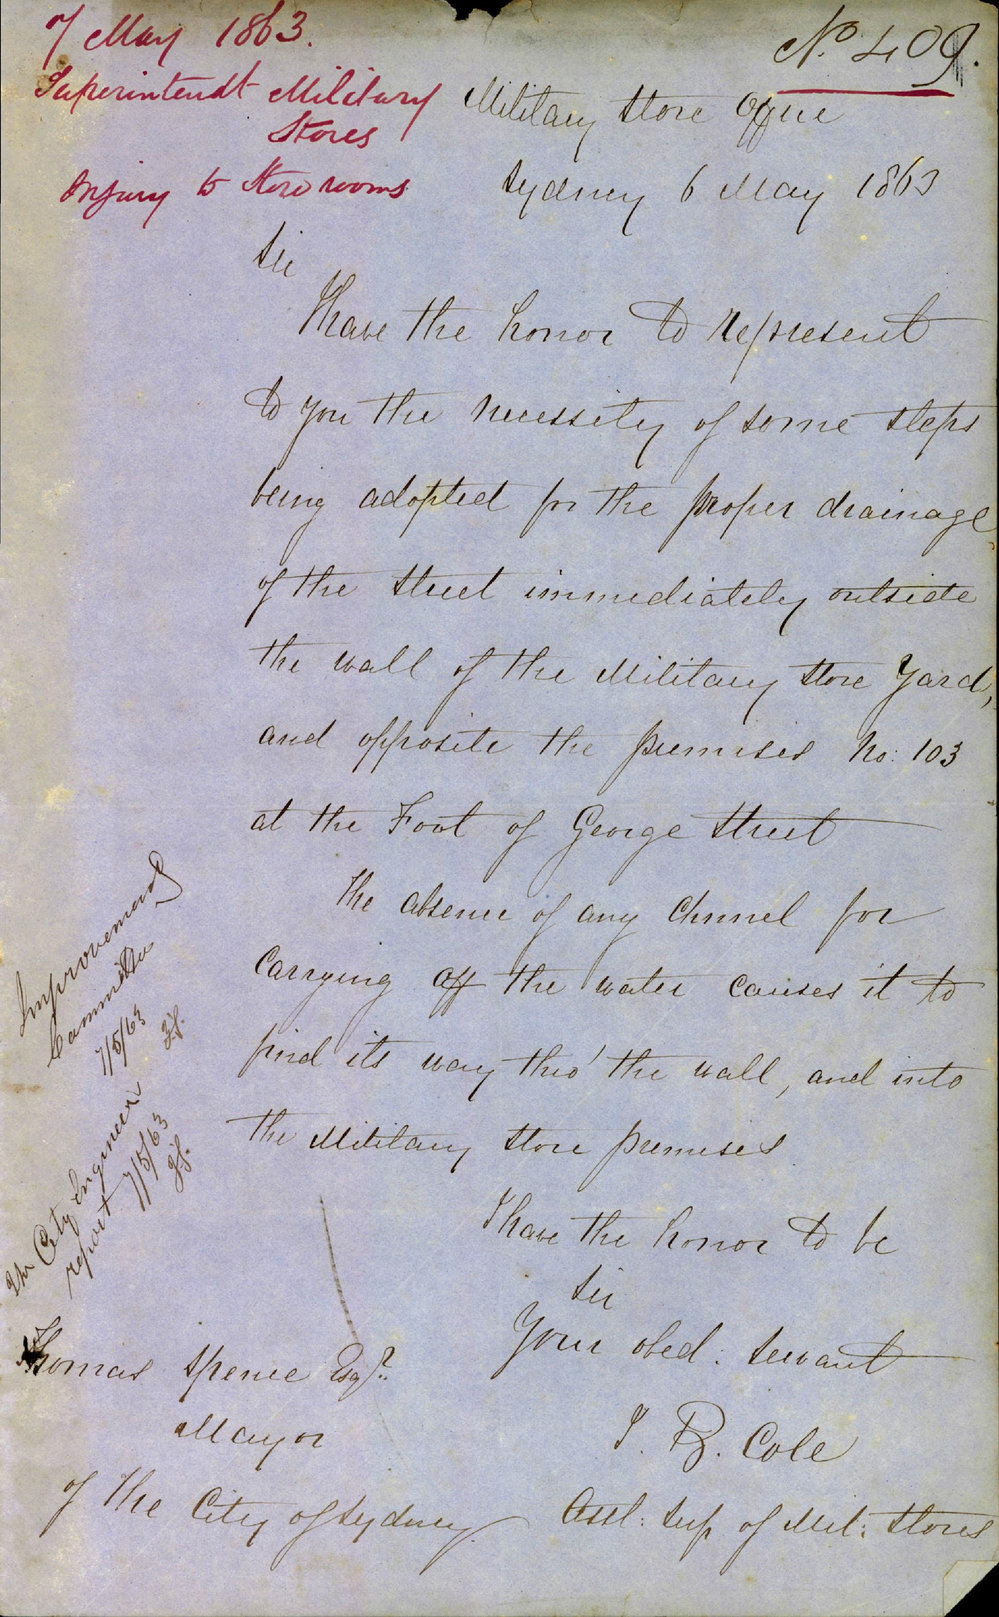 7 May 1863.
No. 409.
Superintendt Military
Stores
Injury to Store rooms
Military Store Office
Sydney 6 May 1863
Sir
I have the honor to represent
to you the necessity of some steps
being adopted for the proper drainage
of the Street immediately outside
the wall of the Military Store Yard,
and opposite the premises No: 103
at the Foot of George Street
The absence of any Chnnel for
Carrying off the water causes it to
find its way thro' the wall, and into
the Military Store premises
I have the honor to be
Sir
Your obed: Servant
J. B. Cole
Asst: Sup of Mil: Stores
Thomas Spence Esqr.
Mayor
of the City of Sydney
Improvement
Committee
7/5/63
The City Engineer
report 7/5/63